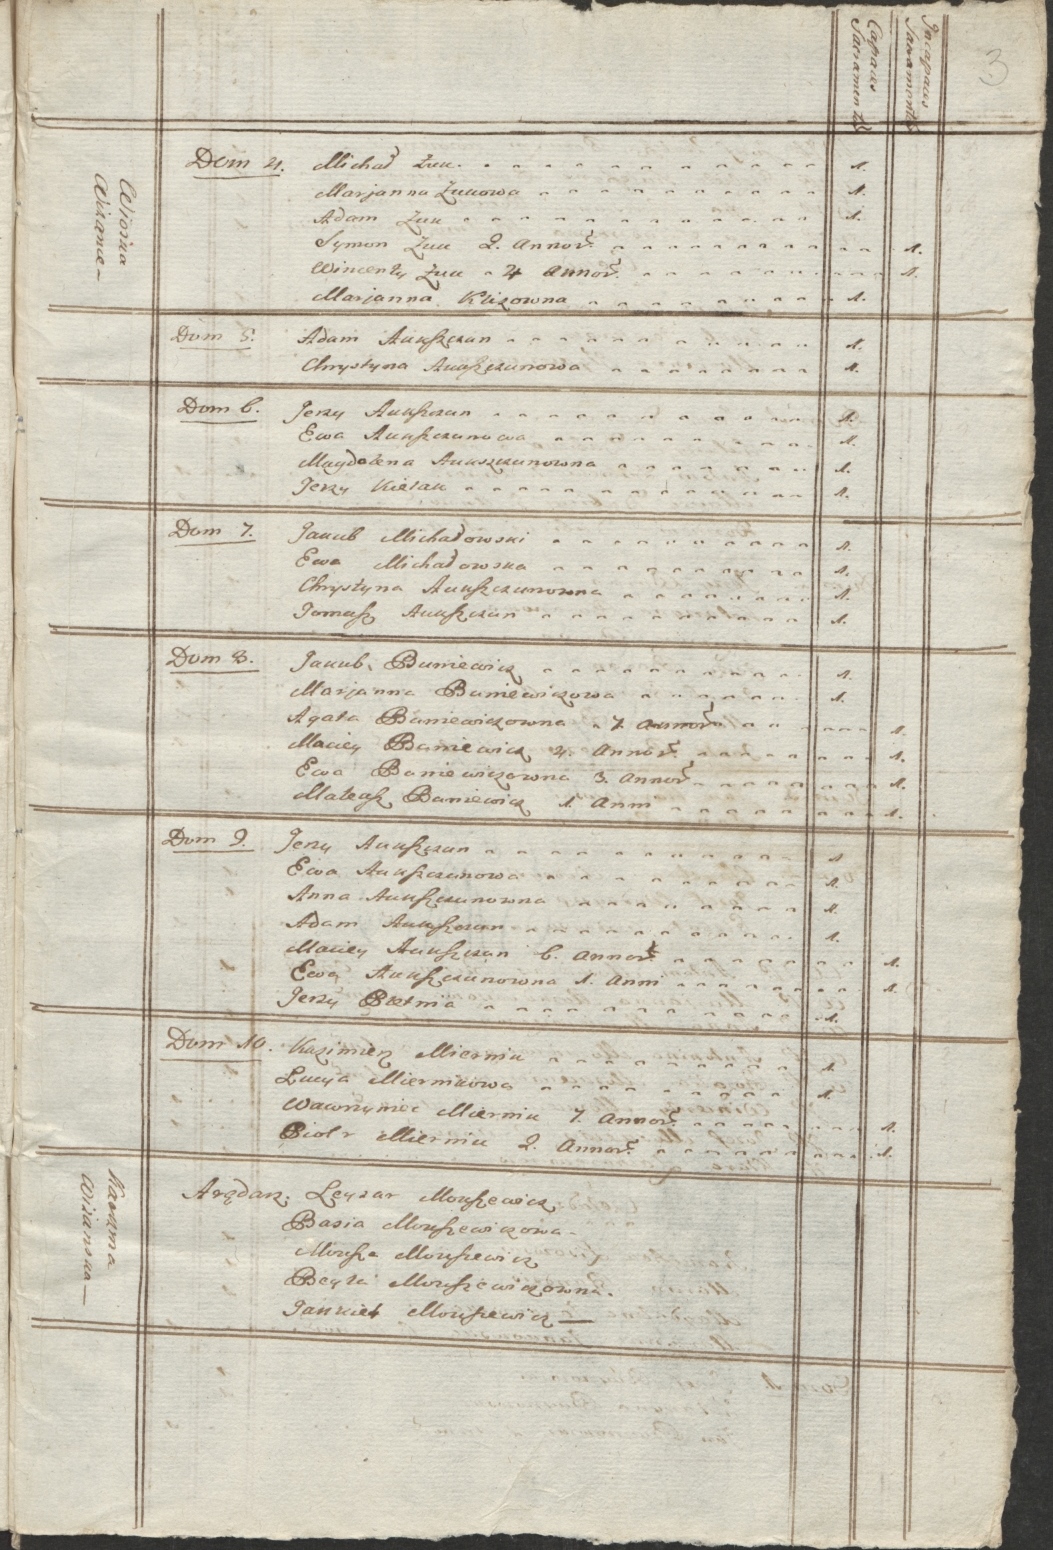 3
Capaces Sacramentor̃
Incapaces Sacramentor̃
Wioska
Dom 4. Michał Żuk. 1.
Marjanna Żukowa 1.
Adam Żuk 1.
Symon Żuk 2. Annor̃. 1.
Wincenty Żuk 4 Annor̃. 1.
Marjanna Klizowna 1.
Dom 5. Adam Aukszkun 1.
Chrystyna Aukszkunowa 1.
Dom 6. Jerzy Aukszkun 1.
Ewa Aukszkunowa 1.
Magdalena Aukszkunowna 1.
Jerzy Kielak 1.
Dom 7. Jakub Michałowski 1.
Ewa Michałowska 1.
Chrystyna Aukszkunowna 1.
Tomasz Aukszkun 1.
Dom 8. Jakub Buniewicz 1.
Marjanna Buniewiczowa 1.
Agata Buniewiczowna 7. Annor̃ 1.
Maciey Buniewicz 4. Annor̃. 1.
Ewa Buniewiczowna 3. Annor̃ 1.
Mateusz Buniewicz 1. Anni 1.
Dom 9. Jerzy Aukszkun 1
Ewa Aukszkunowa 1.
Anna Aukszkunowna 1.
Adam Aukszkun 1.
Maciey Aukszkun 6. Annor̃. 1.
Ewa Aukszkunowna 1. Anni 1.
Jerzy 1.
Dom 10. Kazimierz Miernik 1.
Łucya Miernikowa 1.
Wawrzyniec Miernik 7. Annor̃. 1.
Piotr Miernik 2. Annor̃. 1.
Karczma
Arędarz. Leyzar Mouszewicz
Basia Mouszewiczowa
Mouszа Mouszewicz
Beyła Mouszewiczowna.
Jankiel Mouszewicz —